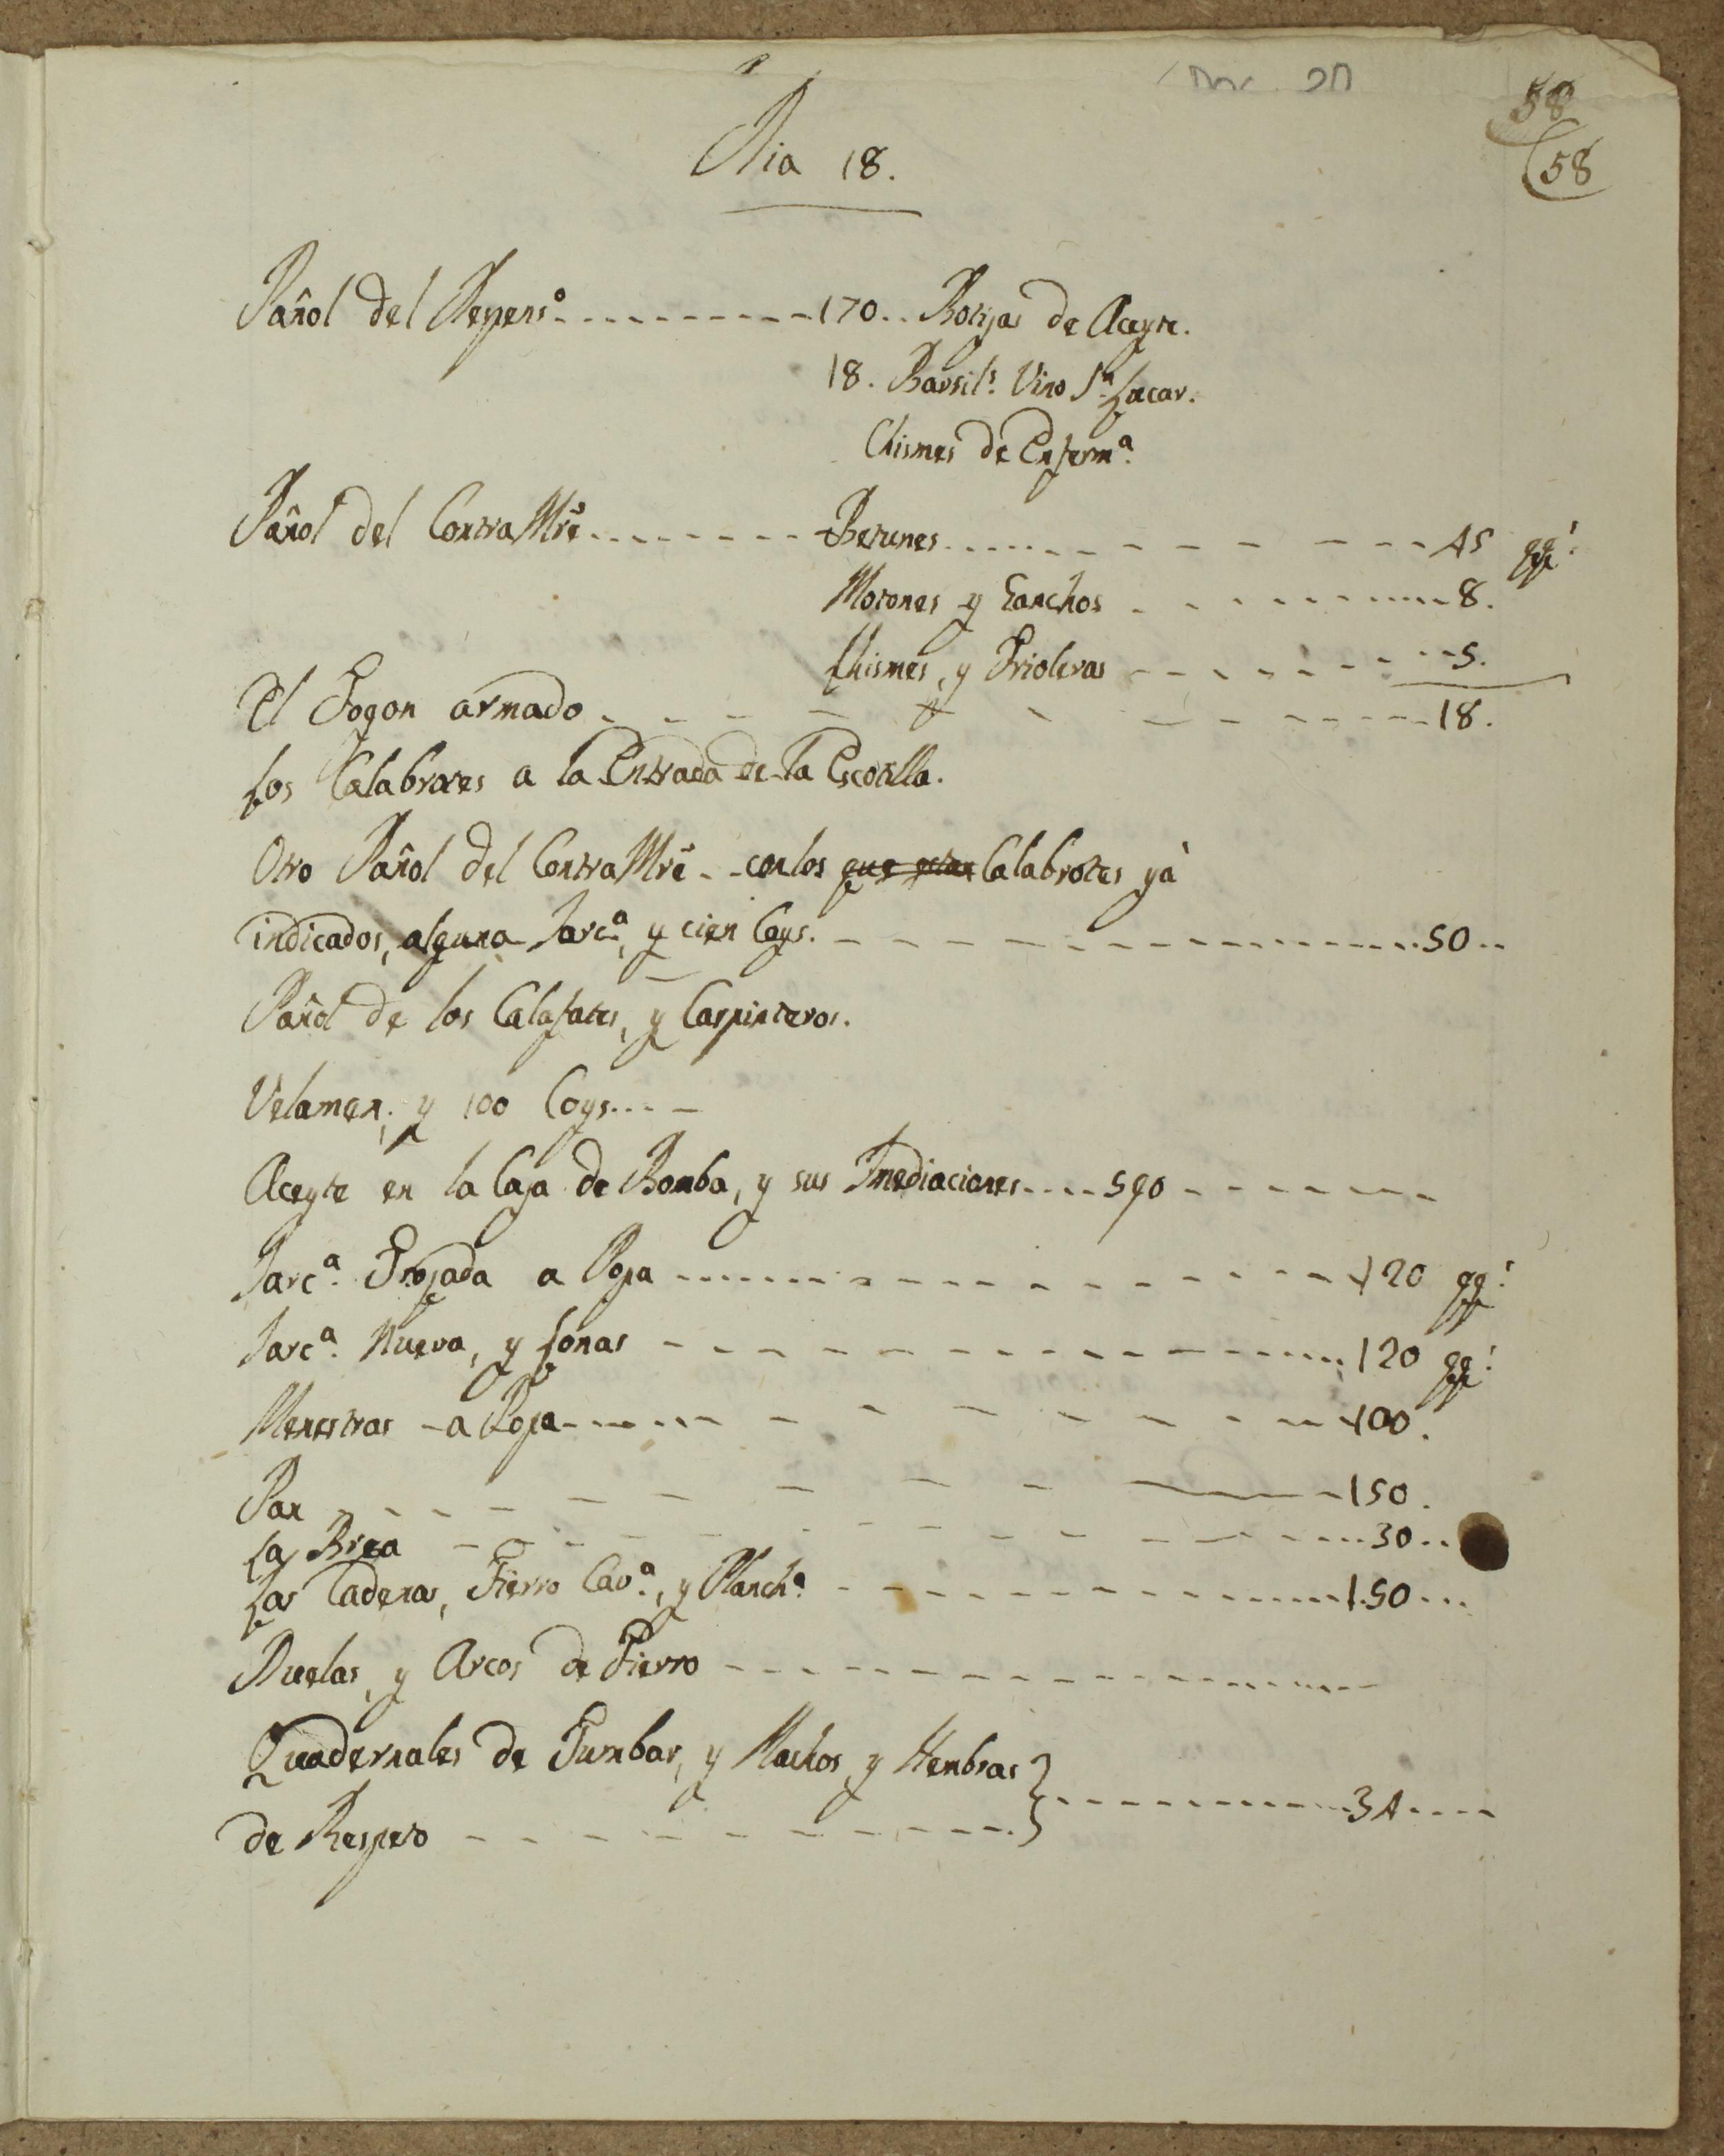 58
58
Dia 18.
Pañol del Despens.º ---------- 170.. Botijas de Aceyte.
18. Barsil.s Vino S.n Lucar.
Chismes de Enferm.a
Pañol del ContraMr̃e ------- Betunes ---------- 45 qq.s
Motones y Ganchos ---------- 8.
Chismes, y Frioleras ---------- 5.
El Fogon armado ---------- 18.
Los Calabrotes a la Entrada de la Escotilla.
Otro Pañol del ContraMr̃e -- con los que estan Calabrotes yà
indicados, alguna Jarc.a, y cien Coys. ---------- 50 ..
Pañol de los Calafates, y Carpinteros.
Velamen, y 100 Coys ----
Aceyte en la Caja de Bomba, y sus Inediaciones .... 590 -------
Jarc.a Trojada a Popa ---------- 120 qq.s
Jarc.a Nueva, y Lonas ---------- 120 qq.s
Menestras - a Popa ---------- 100.
Pan ---------- 150.
La Brea ---------- 30 ..
Las Cadenas, Fierro Cav.a, y Planch.a ---------- 150 ...
Duelas, y Arcos de Fierro ----------
Quadernales de Tumbar, y Machos y Hembras } ---------- 34 ----
de Respeto ----------